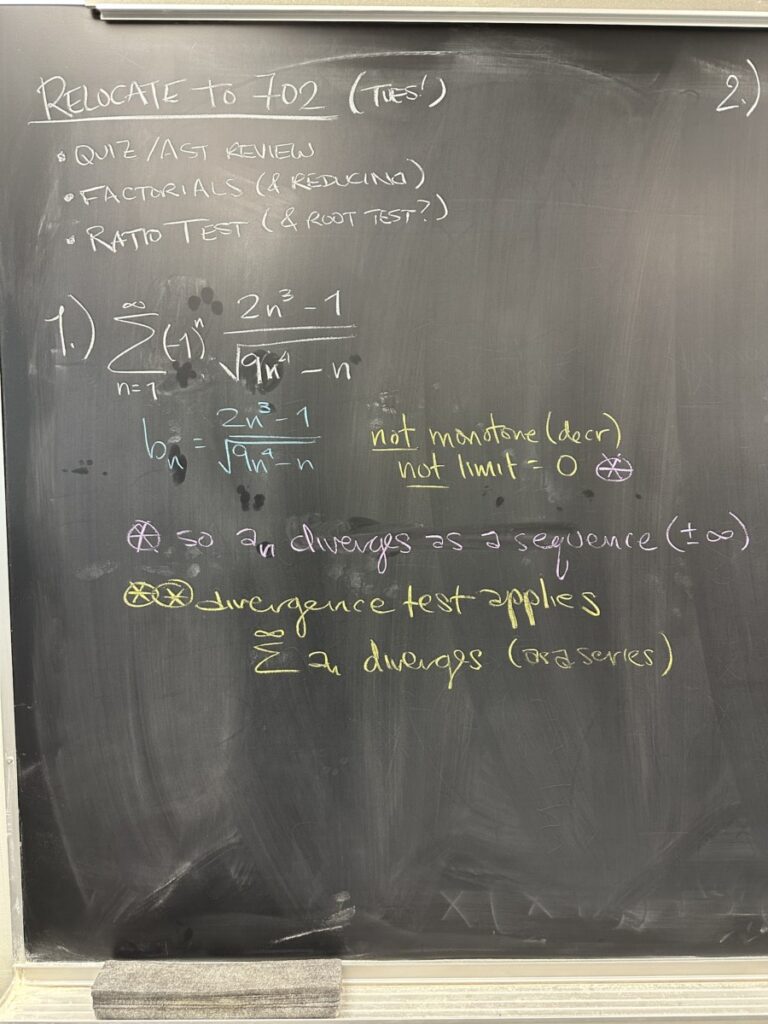 RELOCATE TO 702 (TUES!)
• QUIZ/AST REVIEW
• FACTORIALS (& REDUCING)
• RATIO TEST (& ROOT TEST?)
2.)
1.) ∞ Σ n=1 (-1)^n (2n³ - 1)/√(9n⁴ - n)
bₙ = (2n³ - 1)/√(9n⁴ - n)
not monotone (decr)
not limit = 0 ⊛
⊛ so aₙ diverges as a sequence (±∞)
⊛⊛ divergence test applies
∞ Σ aₙ diverges (as a series)